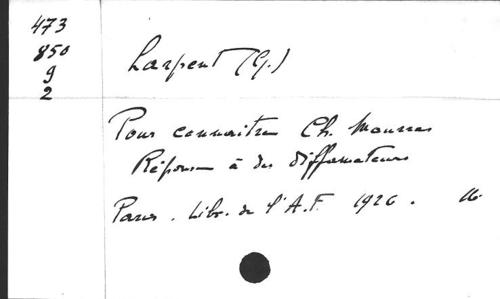 473
850
9
2
Larpent (G.)
Pour connaitre Ch. Maurras
Réponse à des diffamateurs
Paris. Libr. de l'A.F. 1926. 16